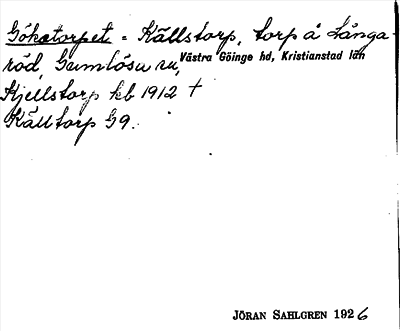 Göketorpet = Källstorp, torp å Långa-
röd, Gumlösa sn, Västra Göinge hd, Kristianstad län
Kjellstorp kb 1912 †
Källtorp G9.
JÖRAN SAHLGREN 1926